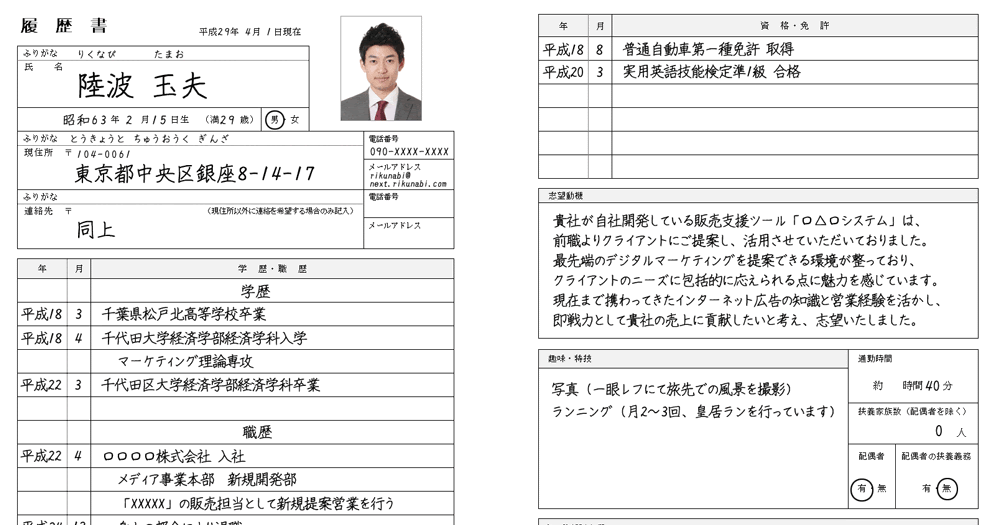 履歴書
平成29年 4月 1日現在
ふりがな りくなび たまお
氏 名
陸波 玉夫
昭和63年 2月15日生 (満29歳) 男 女
ふりがな とうきょうと ちゅうおうく ぎんざ
電話番号
現住所 〒104-0061
090-XXXX-XXXX
東京都中央区銀座8-14-17
メールアドレス
rikunabi@
next.rikunabi.com
ふりがな
電話番号
連絡先 〒 (現住所以外に連絡を希望する場合のみ記入)
同上
メールアドレス
年 月 学 歴・職 歴
学歴
平成18 3 千葉県松戸北高等学校卒業
平成18 4 千代田大学経済学部経済学科入学
マーケティング理論専攻
平成22 3 千代田区大学経済学部経済学科卒業
職歴
平成22 4 〇〇〇〇株式会社 入社
メディア事業本部 新規開発部
「XXXXX」の販売担当として新規提案営業を行う
年 月 資 格・免 許
平成18 8 普通自動車第一種免許 取得
平成20 3 実用英語技能検定準1級 合格
志望動機
貴社が自社開発している販売支援ツール「〇△〇システム」は、
前職よりクライアントにご提案し、活用させていただいておりました。
最先端のデジタルマーケティングを提案できる環境が整っており、
クライアントのニーズに包括的に応えられる点に魅力を感じています。
現在まで携わってきたインターネット広告の知識と営業経験を活かし、
即戦力として貴社の売上に貢献したいと考え、志望いたしました。
趣味・特技
写真(一眼レフにて旅先での風景を撮影)
ランニング(月2~3回、皇居ランを行っています)
通勤時間
約 時間40分
扶養家族数(配偶者を除く)
0 人
配偶者 配偶者の扶養義務
有・無 有・無